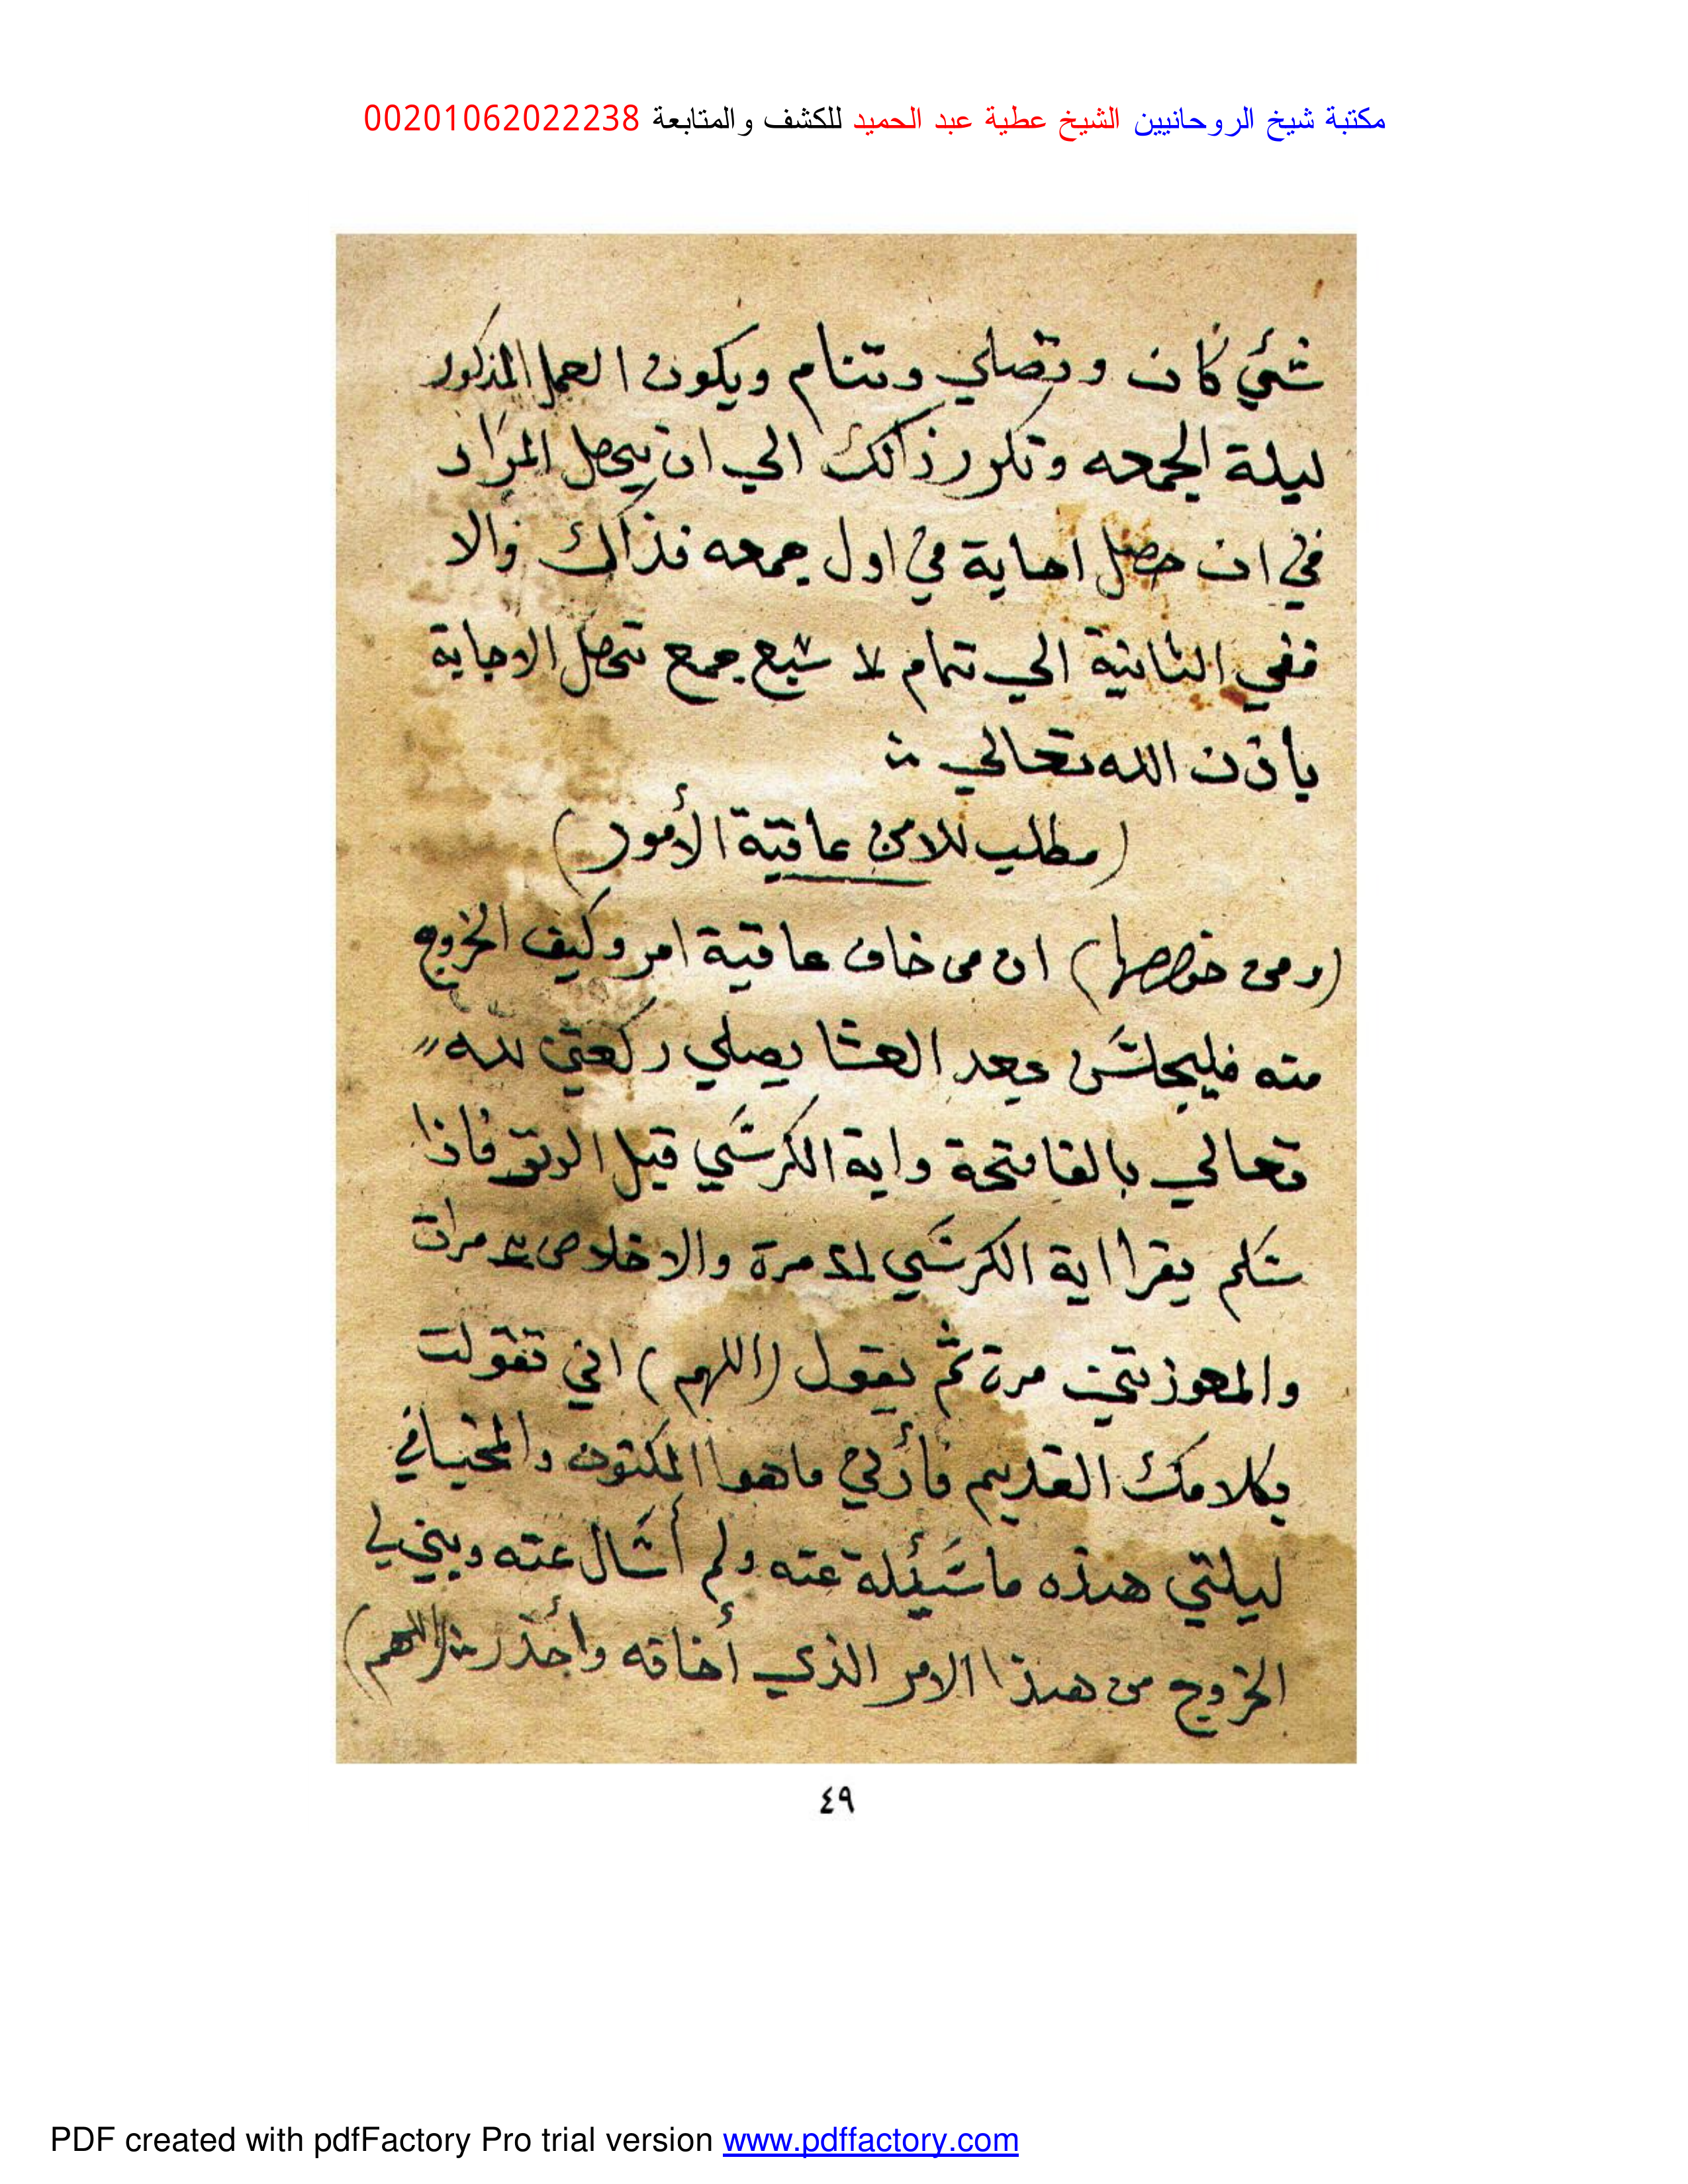 مكتبة شيخ الروحانيين الشيخ عطية عبد الحميد للكشف والمتابعة 00201062022238
شئي كان وتصلي وتنام ويكون العمل المذكور
ليلة الجمعه وتكرر ذالك الي ان يحصل المراد
في ان حصل اجابة في اول جمعه فذاك والا
ففي الثانية الي تمام لا سبع جمع تحصل الاجابة
باذن الله تعالي
(مطلب للامن عاقبة الأمور)
(ومن خوصها) ان من خاف عاقبة امر وكيف الخروج
منه فليجلس بعد العشا يصلي ركعتي لله
تعالي بالفاتحة واية الكرسي قبل الوتر فاذا
سلم يقرا اية الكرسي مرة والاخلاص مرات
والمعوذتين مرة ثم يقول (اللهم) اني تفولت
بكلامك القديم فأرني ماهوا المكتون والمخبافي
ليلتي هذه ماسئلة عنه ولم أسال عنه وبيني لي
الخروج من هذا الامر الذي أخافه وأحذر منه (اللهم)
٤٩
PDF created with pdfFactory Pro trial version www.pdffactory.com